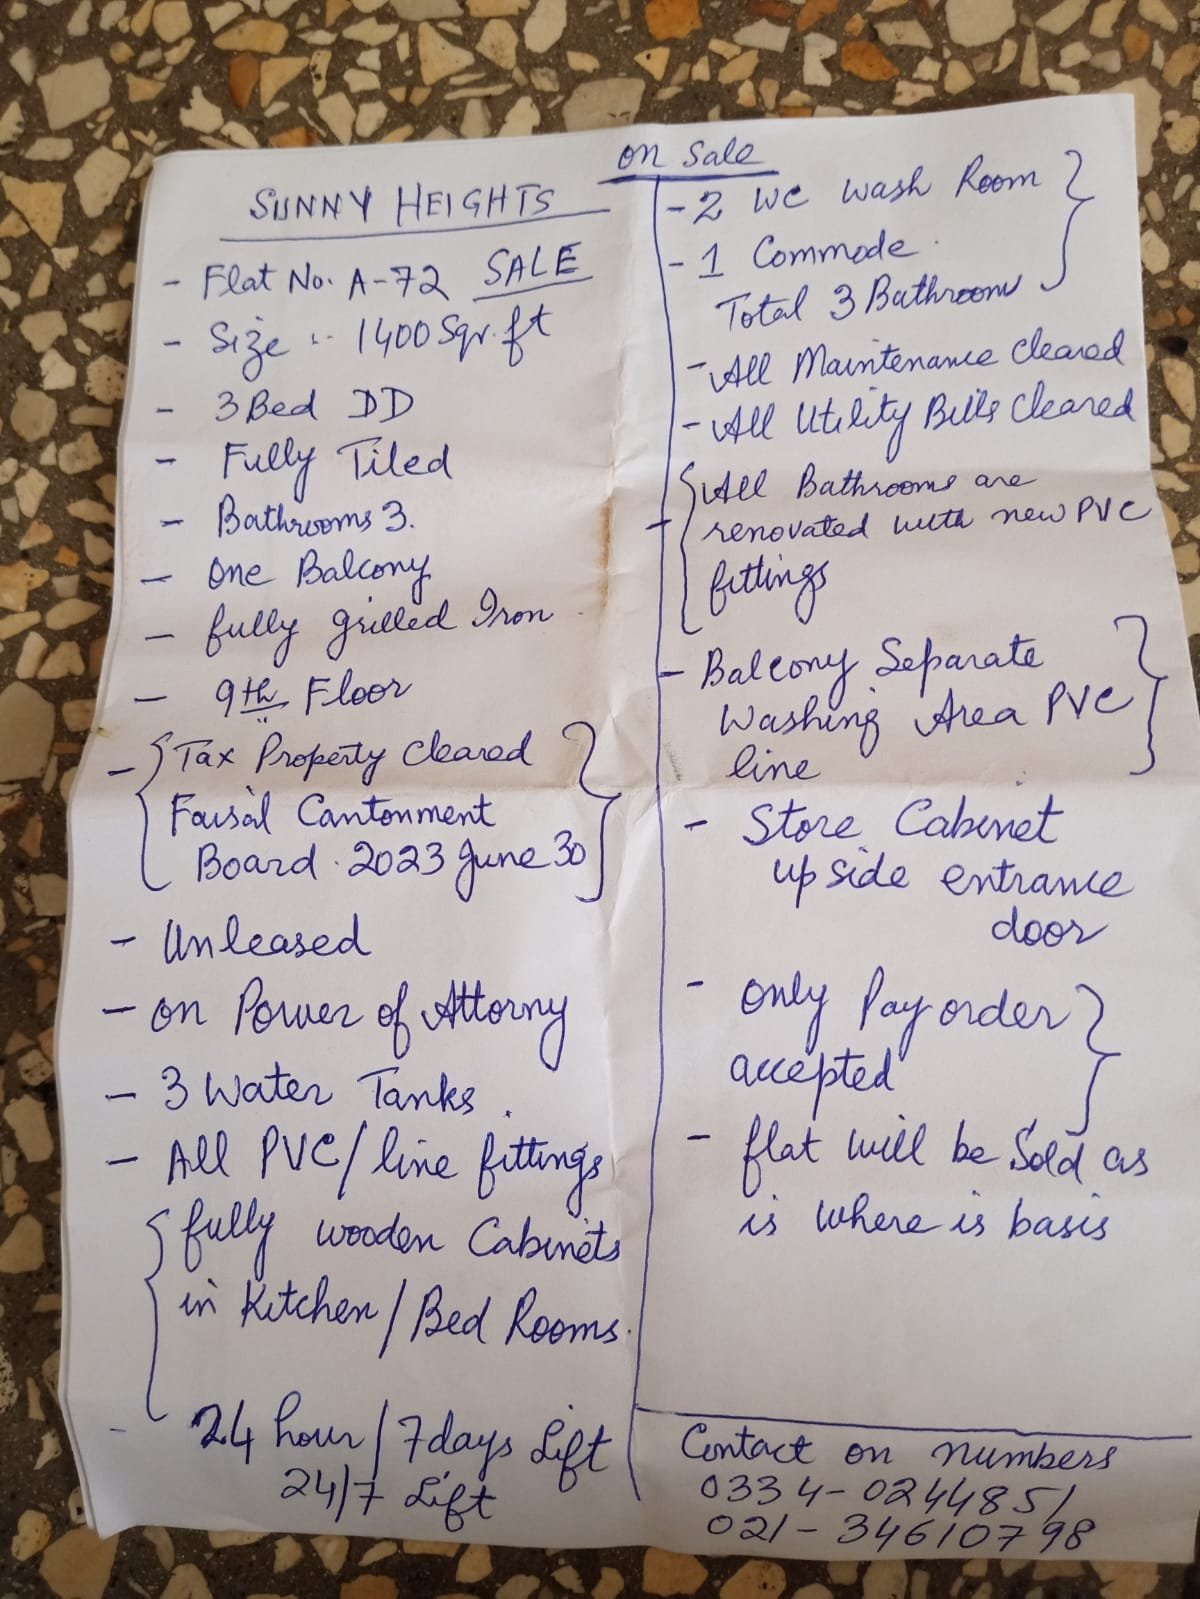 on Sale
SUNNY HEIGHTS
- Flat No. A-72 SALE
- Size :- 1400 Sqr. ft
- 3 Bed DD
- Fully Tiled
- Bathrooms 3.
- One Balcony
- fully grilled Iron
- 9th Floor
- Tax Property Cleared
Faisal Cantonment
Board. 2023 June 30
- Unleased
- on Power of Attorny
- 3 Water Tanks.
- All PVC/line fittings
fully wooden Cabinets
in Kitchen/Bed Rooms.
- 24 hour/7days Lift
24/7 Lift
- 2 WC Wash Room
- 1 Commode.
Total 3 Bathrooms
- All Maintenance Cleared
- All Utility Bills Cleared
- All Bathrooms are
renovated with new PVC
fittings
- Balcony Separate
Washing Area PVC
line
- Store Cabinet
up side entrance
door
- only Pay order
accepted
- flat will be Sold as
is where is basis
Contact on numbers
0334-0244851
021-34610798